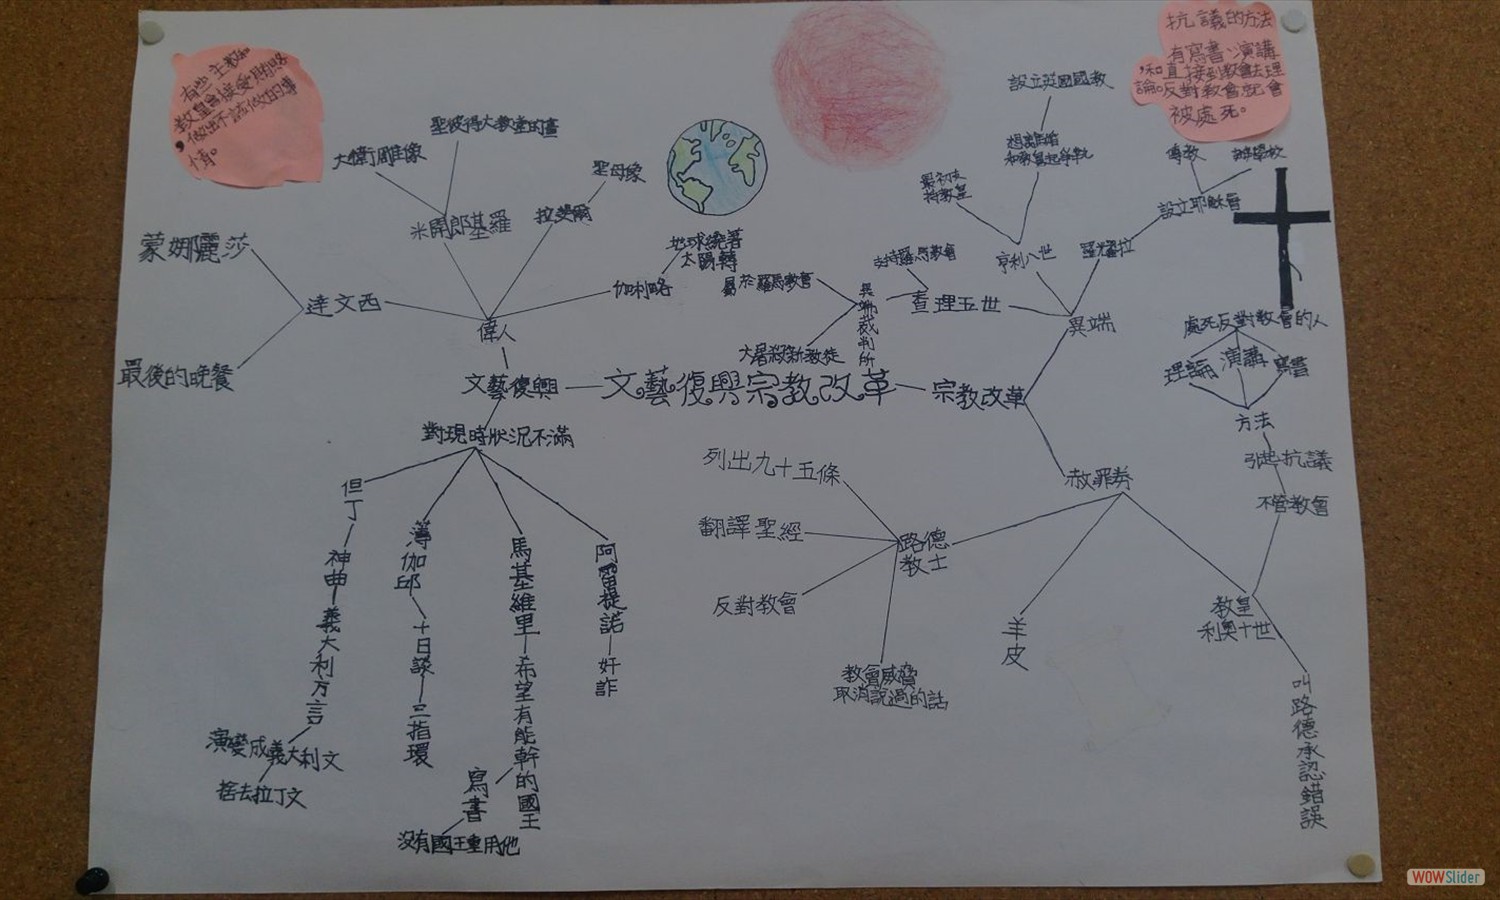 有些主教和
教皇會接受賄賂
，做出不該做的事
情。
抗議的方法
有寫書、演講
和直接到教會去理
論。反對教會就會
被處死。
文藝復興宗教改革
文藝復興
偉人
達文西
蒙娜麗莎
最後的晚餐
米開郎基羅
大衛雕像
聖彼得大教堂的畫
拉斐爾
聖母像
伽利略
地球繞著
太陽轉
對現時狀況不滿
但丁
神曲
義大利方言
演變成義大利文
捨去拉丁文
薄伽邱
十日談
三指環
馬基維里
希望有能幹的國王
寫書
沒有國王重用他
阿雷提諾
奸詐
宗教改革
異端
查理五世
支持羅馬教會
異端裁判所
屬於羅馬教會
大屠殺新教徒
亨利八世
最初支
持教皇
想離婚
和教皇起爭執
設立英國國教
羅耀拉
設立耶穌會
傳教
辦學校
赦罪券
路德
教士
列出九十五條
翻譯聖經
反對教會
教會威脅
取消說過的話
羊
皮
教皇
利奧十世
叫路德承認錯誤
不管教會
引起抗議
方法
理論
演講
寫書
處死反對教會的人
WOWSlider